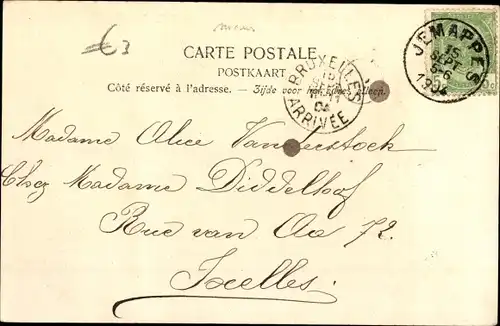 €3
CARTE POSTALE
POSTKAART
Côté réservé à l'adresse. — Zijde voor het adres alleen.
JEMAPPES
15
SEPT
1904
BRUXELLES
ARRIVÉE
04
Madame Alice Vanderstock
Chez Madame Diddelhof
Rue van Aa 72.
Ixelles.